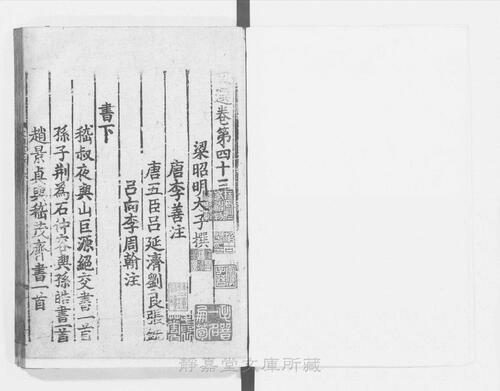 選卷第四十三
梁昭明太子撰
唐李善注
唐五臣呂延濟劉良張銑
呂向李周翰注
書下
嵇叔夜與山巨源絕交書一首
孫子荊為石仲容與孫皓書一首
趙景真與嵇茂齊書一首
靜嘉堂文庫所藏